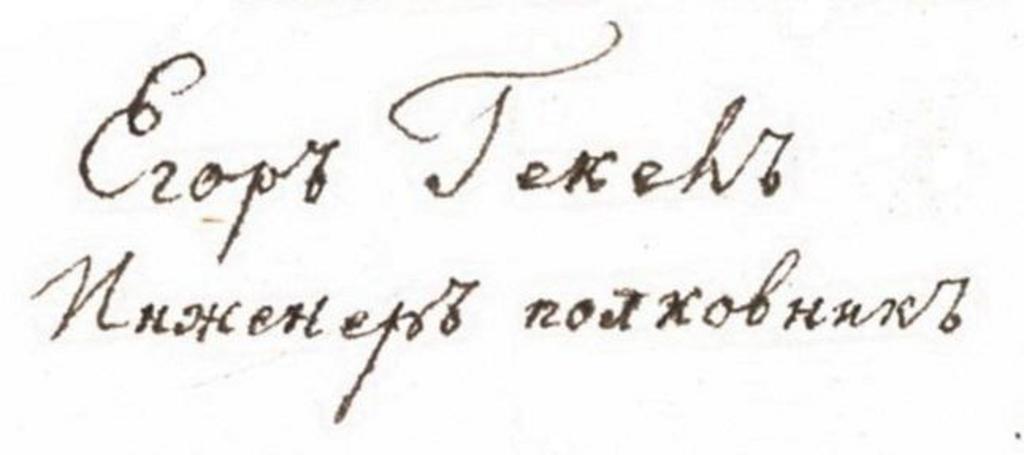 Егоръ Гекелъ
Инженеръ полковникъ